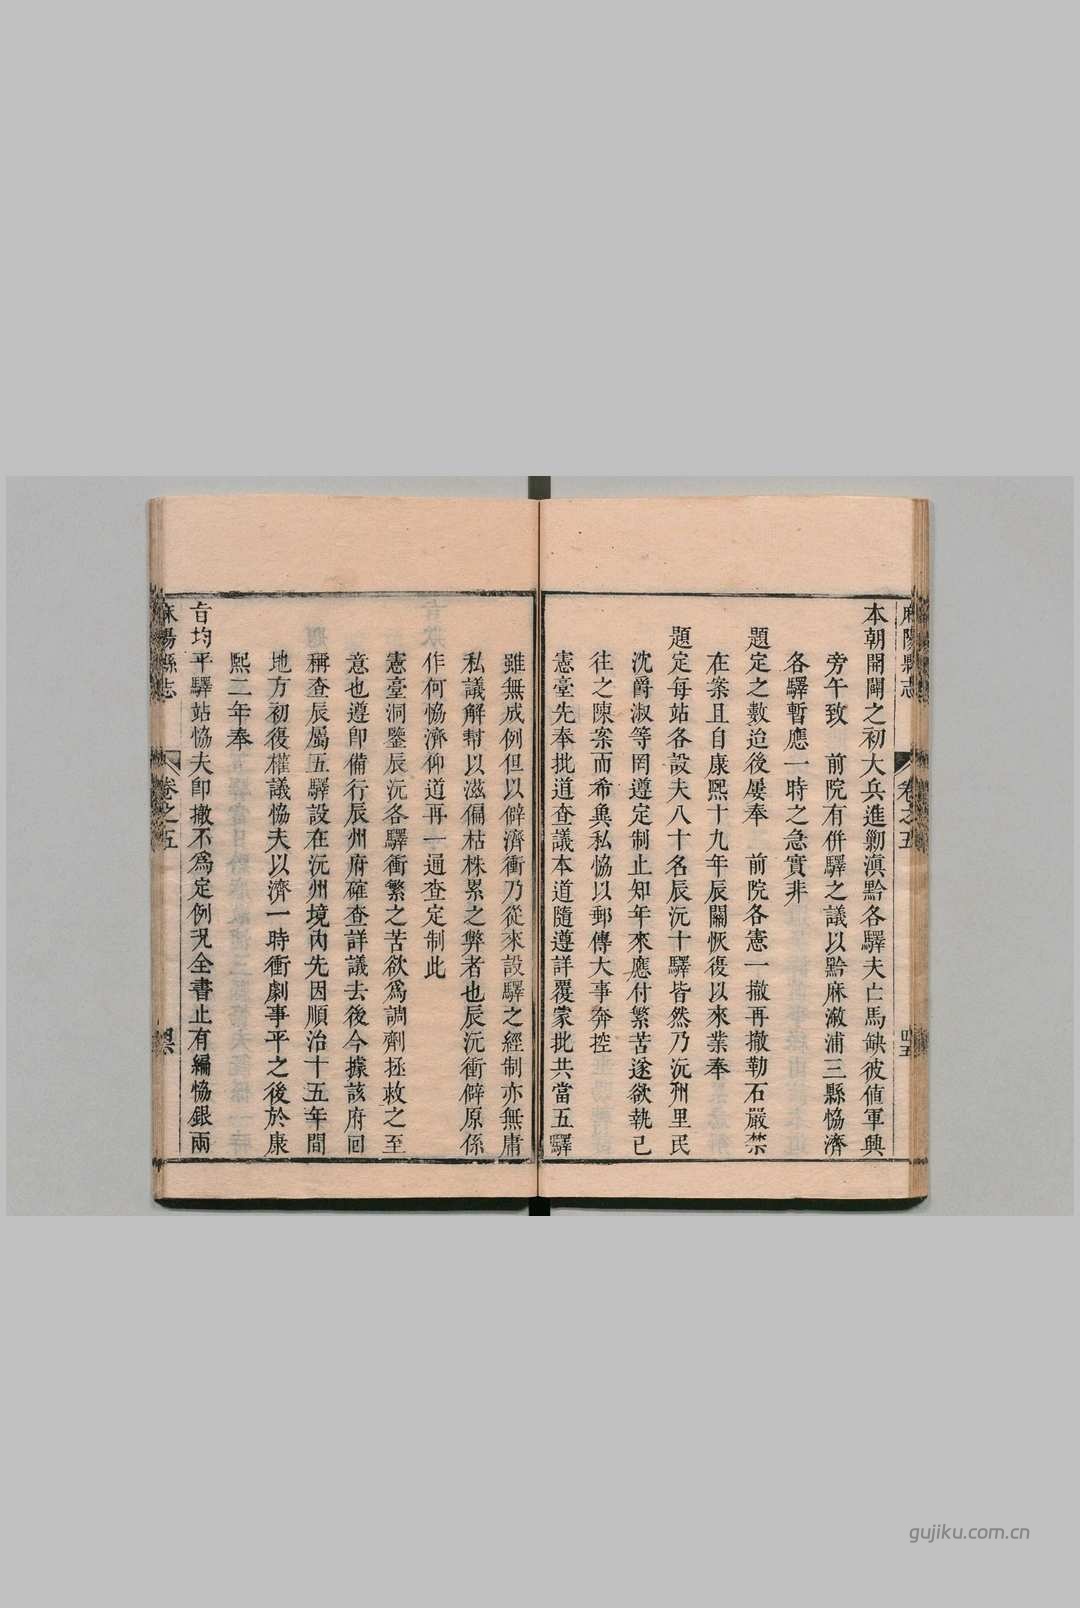 麻陽縣志 卷之五 四五
本朝開闢之初大兵進勦滇黔各驛夫亡馬缺彼值軍興
旁午致 前院有併驛之議以黔麻漵浦三縣恊濟
各驛暫應一時之急實非
題定之數迨後屢奉 前院各憲一撤再撤勒石嚴禁
在案且自康熙十九年辰關恢復以來業奉
題定每站各設夫八十名辰沅十驛皆然乃沅州里民
沈爵淑等罔遵定制止知年來應付繁苦遂欲執已
往之陳案而希興私恊以郵傳大事奔控
憲臺先奉批道查議本道隨遵詳覆蒙批共當五驛
雖無成例但以僻濟衝乃從來設驛之經制亦無庸
私議解幫以滋偏枯株累之弊者也辰沅衝僻原係
作何恊濟仰道再一通查定制此
憲臺洞鑒辰沅各驛衝繁之苦欲爲調劑拯救之至
意也遵卽備行辰州府確查詳議去後今據該府回
稱查辰屬五驛設在沅州境內先因順治十五年間
地方初復權議恊夫以濟一時衝劇事平之後於康
熙二年奉
旨均平驛站恊夫卽撤不爲定例况全書止有編恊銀兩
麻陽縣志 卷之五 四六
gujiku.com.cn